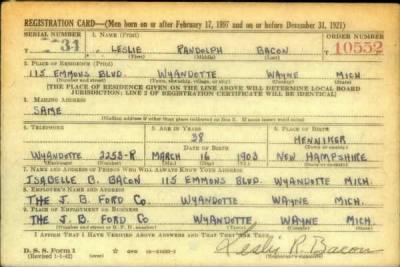 REGISTRATION CARD—(Men born on or after February 17, 1897 and on or before December 31, 1921)
SERIAL NUMBER 1. NAME (Print) ORDER NUMBER
34 LESLIE RANDOLPH BACON 10552
(First) (Middle) (Last)
2. PLACE OF RESIDENCE (Print)
115 EMMONS BLVD. WYANDOTTE WAYNE MICH
(Number and street) (Town, township, village, or city) (County) (State)
[THE PLACE OF RESIDENCE GIVEN ON THE LINE ABOVE WILL DETERMINE LOCAL BOARD
JURISDICTION; LINE 2 OF REGISTRATION CERTIFICATE WILL BE IDENTICAL]
3. MAILING ADDRESS
SAME
[Mailing address if other than place indicated on line 2. If same insert word same]
4. TELEPHONE 5. AGE IN YEARS 6. PLACE OF BIRTH
38 HENNIKER
DATE OF BIRTH (Town or county)
WYANDOTTE 2253-R MARCH 16 1903 NEW HAMPSHIRE
(Exchange) (Number) (Mo.) (Day) (Yr.) (State or country)
7. NAME AND ADDRESS OF PERSON WHO WILL ALWAYS KNOW YOUR ADDRESS
ISABELLE B. BACON 115 EMMONS BLVD. WYANDOTTE MICH.
8. EMPLOYER'S NAME AND ADDRESS
THE J. B. FORD CO. WYANDOTTE WAYNE MICH.
9. PLACE OF EMPLOYMENT OR BUSINESS
THE J. B. FORD CO. WYANDOTTE WAYNE MICH.
(Number and street or R. F. D. number) (Town) (County) (State)
I AFFIRM THAT I HAVE VERIFIED ABOVE ANSWERS AND THAT THEY ARE TRUE.
D. S. S. Form 1
(Revised 1-1-42) (over) Leslie R. Bacon